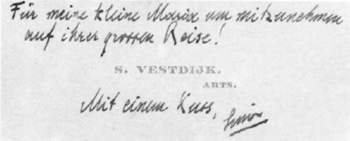 Für meine kleine Maria um mitzunehmen
auf ihrer grossen Reise!
S. VESTDIJK.
ARTS.
Mit einem Kuss,
Simon